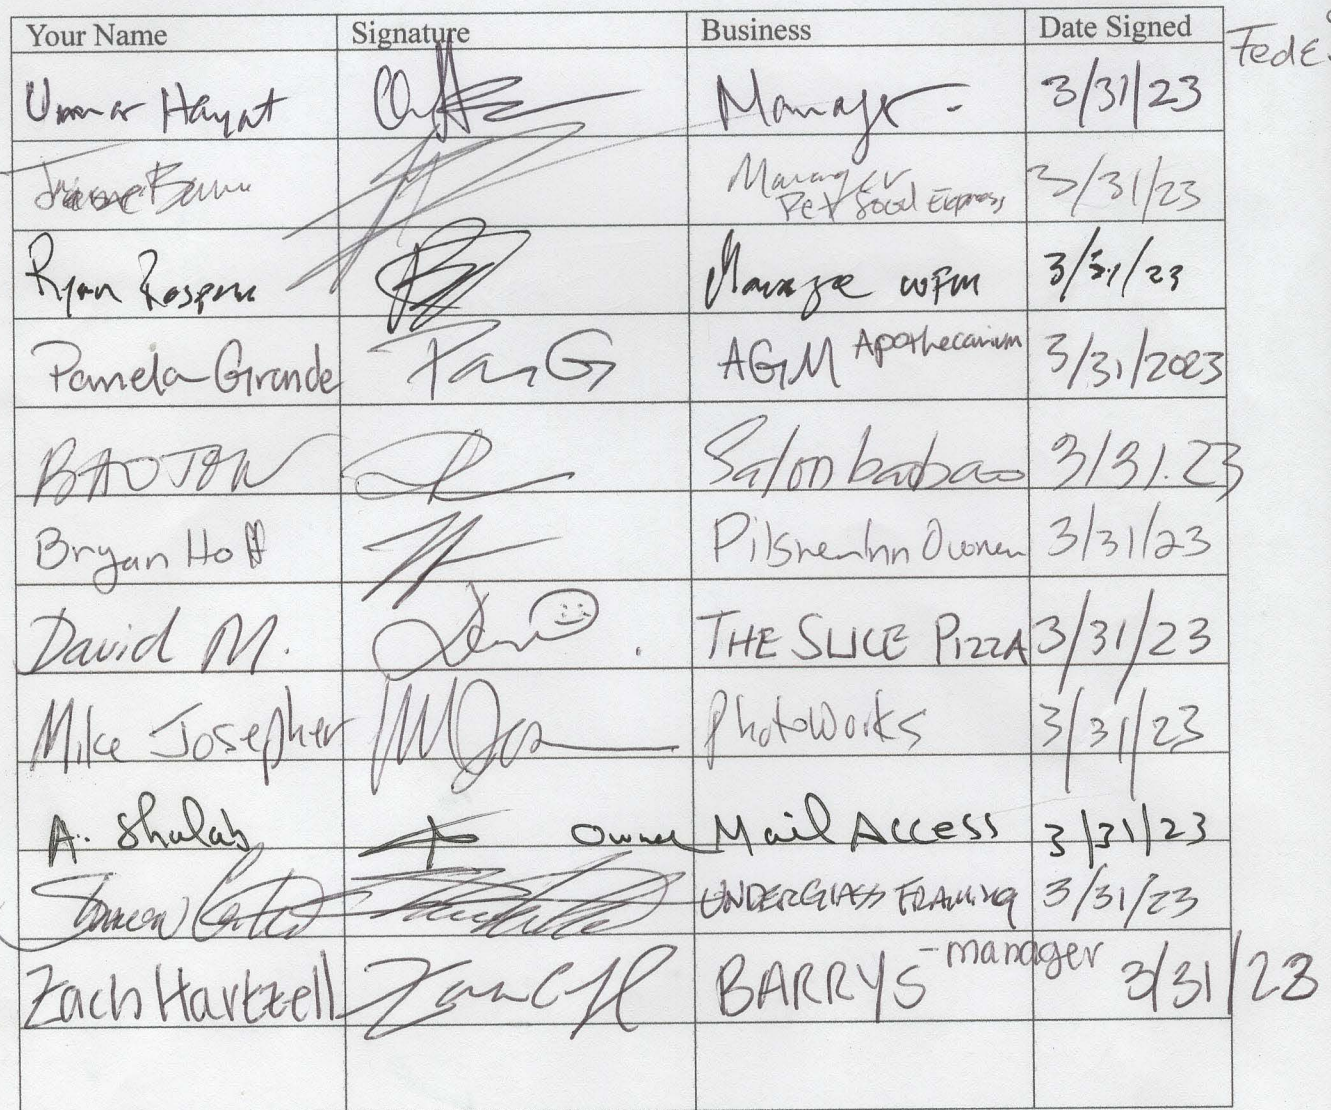 Your Name Signature Business Date Signed
FedE
Ummar Hayat Manager - 3/31/23
Manager
Pet Food Express 3/31/23
Ryan Manager WFM 3/31/23
Pamela Grande Pam G AGM Apothecarium 3/31/2023
BAO TRAN Salon babao 3/31.23
Bryan Hoff Pilsner Inn Owner 3/31/23
David M. THE SLICE PIZZA 3/31/23
Mike Josepher PhotoWorks 3/31/23
A. Shalab Owner Mail Access 3/31/23
UNDERGLASS FRAMING 3/31/23
Zach Hartzell BARRYS - manager 3/31/23